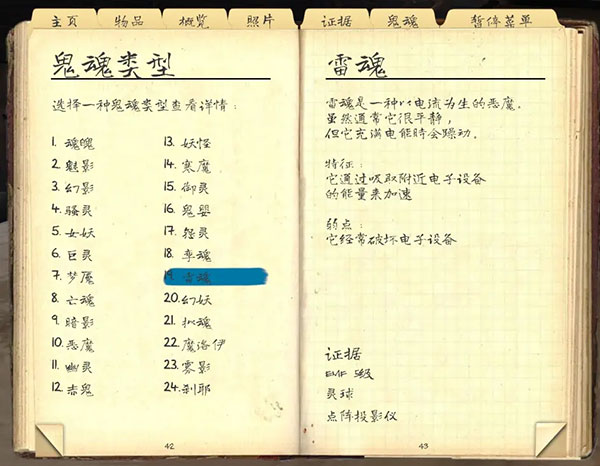 主页 物品 概览 照片 证据 鬼魂 暂停菜单
鬼魂类型
选择一种鬼魂类型查看详情：
1. 魂魄
2. 魅影
3. 幻影
4. 骚灵
5. 女妖
6. 巨灵
7. 梦魇
8. 亡魂
9. 暗影
10. 恶魔
11. 幽灵
12. 赤鬼
13. 妖怪
14. 寒魔
15. 御灵
16. 鬼婴
17. 怨灵
18. 孪魂
19. 雷魂
20. 幻妖
21. 拟魂
22. 魔洛伊
23. 雾影
24. 刹耶
42
雷魂
雷魂是一种以电流为生的恶魔。
虽然通常它很平静，
但它充满电能时会躁动。
特征：
它通过吸取附近电子设备
的能量来加速
弱点：
它经常破坏电子设备
证据
EMF 5级
灵球
点阵投影仪
43